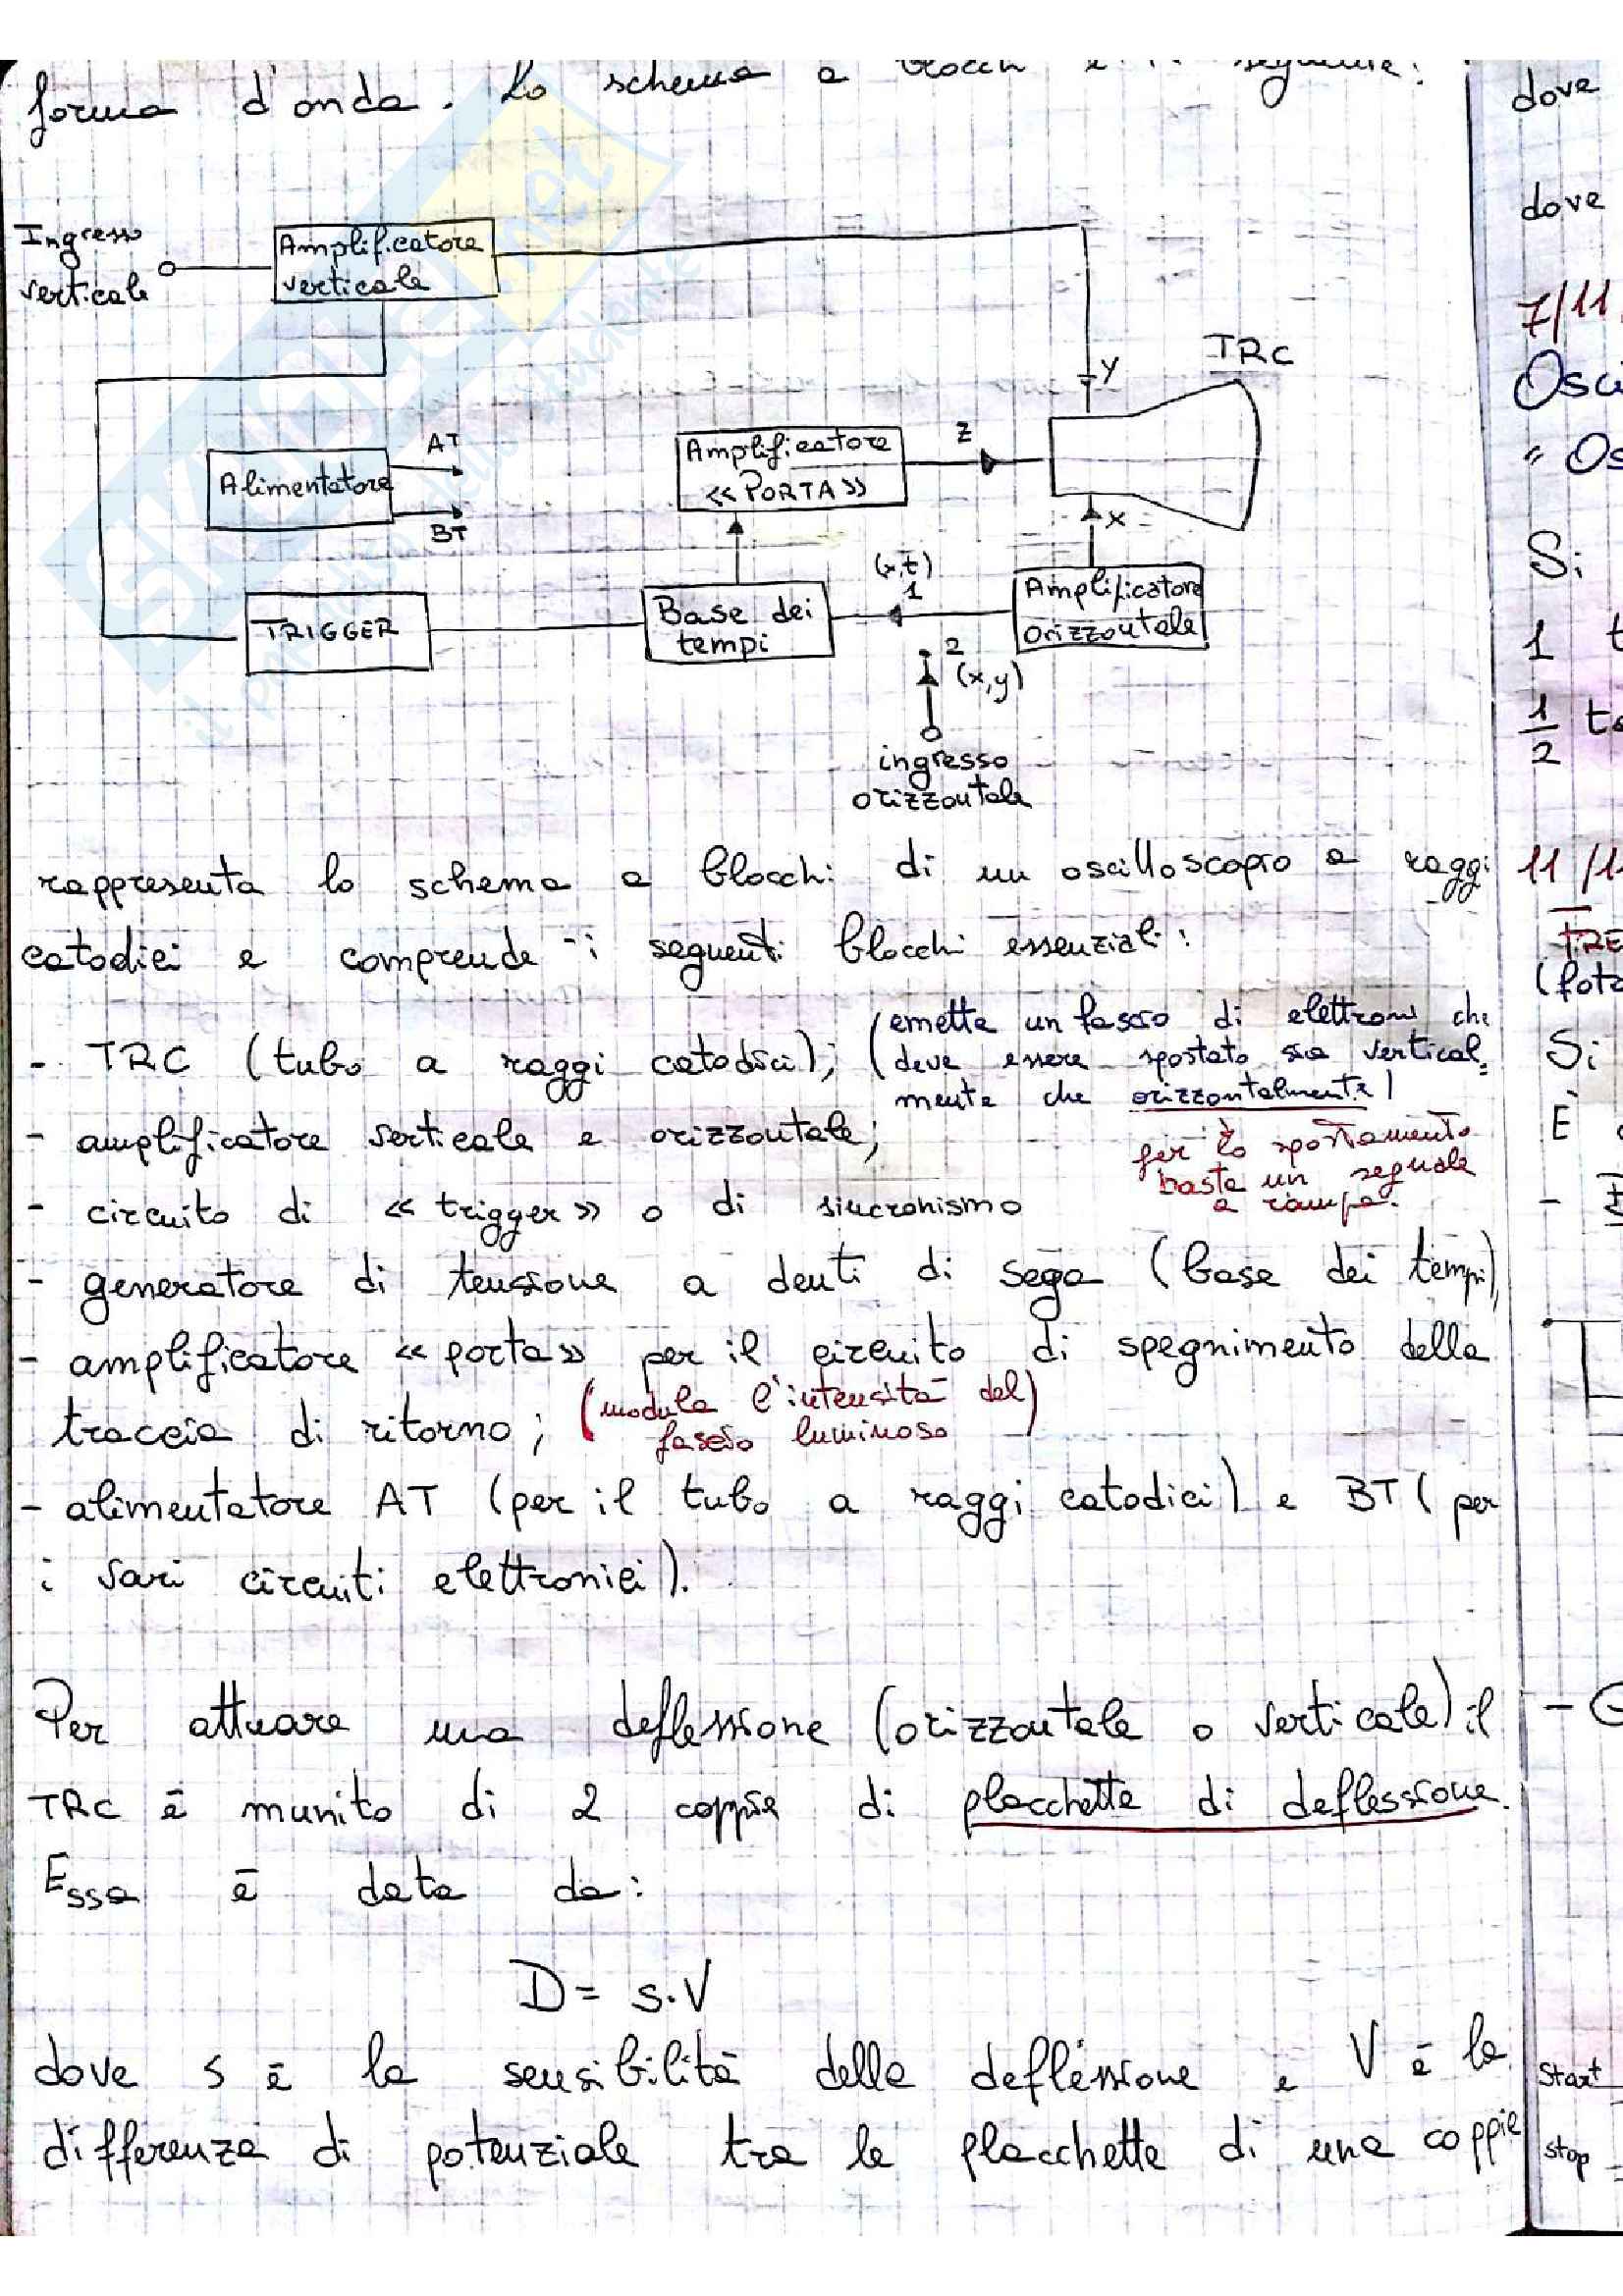 forma d'onda. Lo schema a blocchi è il seguente:
Ingresso
verticale
Amplificatore
verticale
TRC
Y
AT
Alimentatore
BT
Amplificatore
<< PORTA >>
Z
X
(x,t)
1
Amplificatore
orizzontale
TRIGGER
Base dei
tempi
2
(x,y)
ingresso
orizzontale
rappresenta lo schema a blocchi di un oscilloscopio a raggi
catodici e comprende i seguenti blocchi essenziali:
- TRC (tubo a raggi catodici); (emette un fascio di elettroni che
deve essere spostato sia vertical=
mente che orizzontalmente)
- amplificatore verticale e orizzontale;
per lo spostamento
basta un segnale
a rampa.
- circuito di << trigger >> o di sincronismo
- generatore di tensione a denti di sega (base dei tempi),
- amplificatore << porta >> per il circuito di spegnimento della
traccia di ritorno; (modula l'intensità del
fascio luminoso)
- alimentatore AT (per il tubo a raggi catodici) e BT ( per
i vari circuiti elettronici).
Per attuare una deflessione (orizzontale o verticale) il
TRC è munito di 2 coppie di placchette di deflessione.
Essa è data da:
D = s.V
dove s è la sensibilità della deflessione e V è la
differenza di potenziale tra le placchette di una coppia
dove
dove
7/11
Osci
" Os
Si
1 t
1/2 to
11/11
TRE
(foto
Si
È
-
- G
start
stop
SKUOLA.net
il portale dello studente